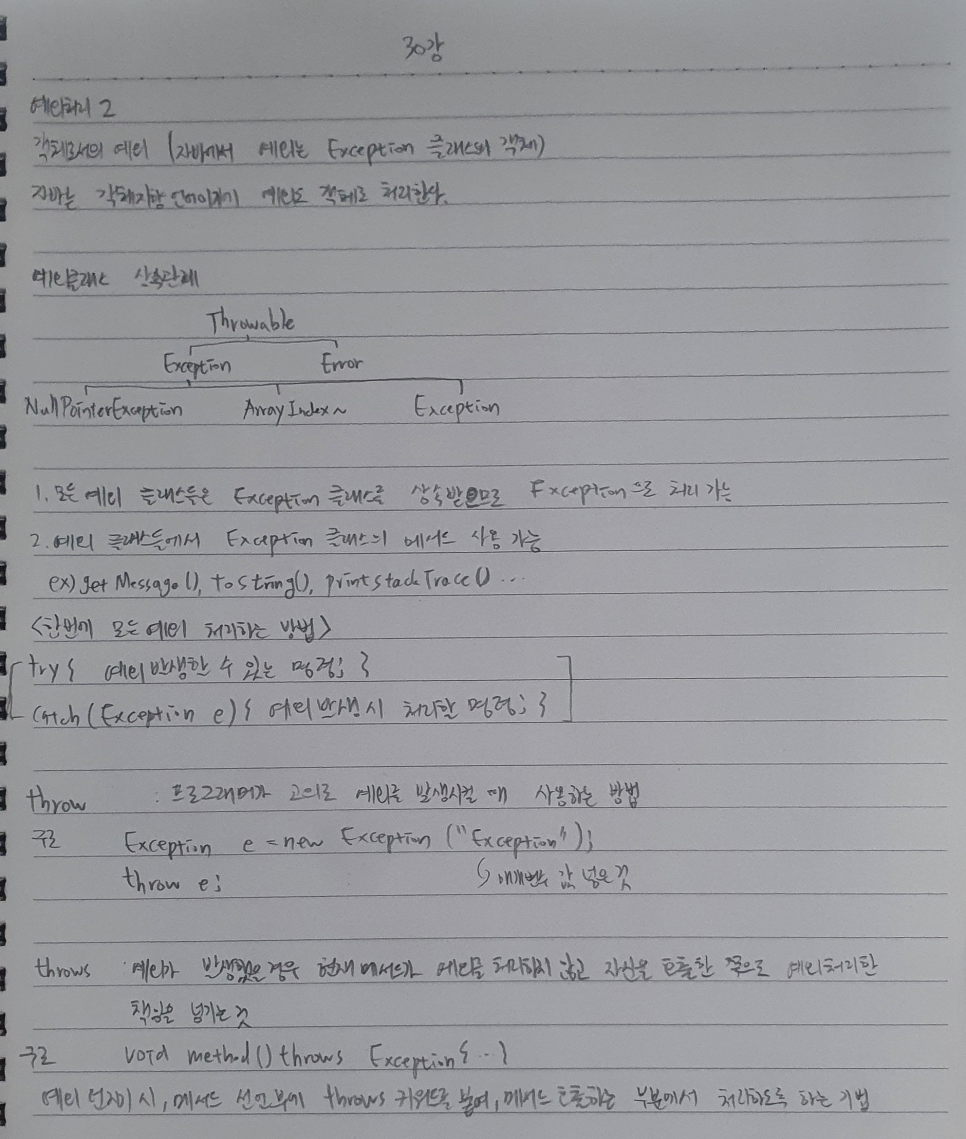 30강
예외처리 2
객체로서의 예외 (자바에서 예외는 Exception 클래스의 객체)
자바는 객체지향 언어이기에 예외도 객체로 처리한다.
예외클래스 상속관계
Throwable
Exception Error
NullPointerException ArrayIndex~ Exception
1. 모든 예외 클래스들은 Exception 클래스를 상속받으므로 Exception으로 처리 가능
2. 예외 클래스들에서 Exception 클래스의 메서드 사용 가능
ex) getMessage(), toString(), printstackTrace() ...
<한번에 모든 예외 처리하는 방법>
try { 예외 발생할 수 있는 명령; }
catch (Exception e) { 예외 발생 시 처리할 명령; }
throw : 프로그래머가 고의로 예외를 발생시킬 때 사용하는 방법
구조 Exception e = new Exception ("Exception");
throw e; 매개변수 값 넣은 것
throws 예외가 발생했을 경우 현재 메서드가 예외를 처리하지 않고 자신을 호출한 쪽으로 예외처리한
책임을 넘기는 것
구조 void method() throws Exception { ... }
예외 던지기 시, 메서드 선언부에 throws 키워드를 붙여, 메서드 호출하는 부분에서 처리하도록 하는 기법